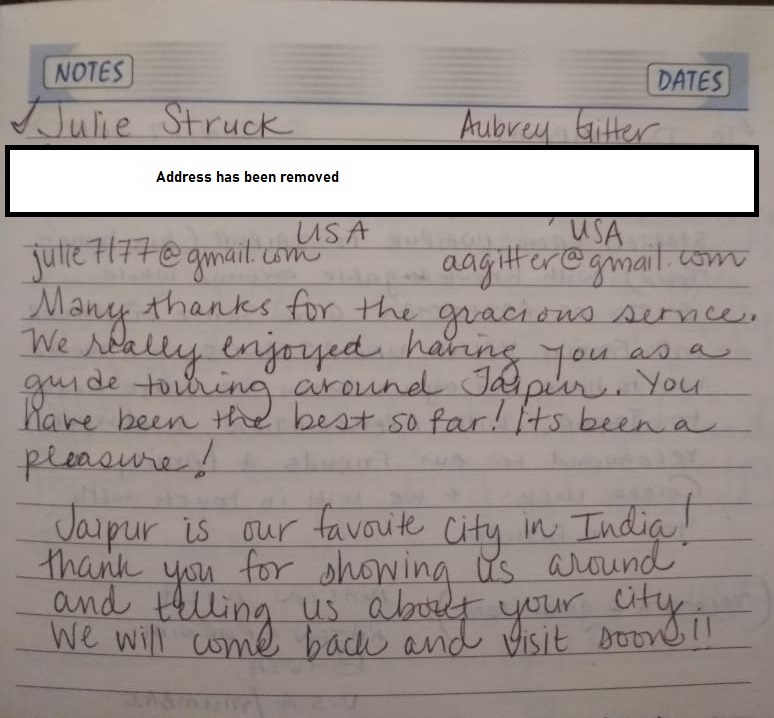 NOTES DATES
✓ Julie Struck Aubrey Gitter
Address has been removed
USA USA
julie7177@gmail.com aagitter@gmail.com
Many thanks for the gracious service.
We really enjoyed having you as a
guide touring around Jaipur. You
have been the best so far! Its been a
pleasure!
Jaipur is our favorite city in India!
thank you for showing us around
and telling us about your city.
We will come back and visit soon!!